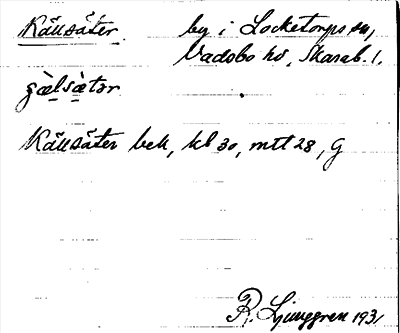 Källsäter by i Locketorps sn,
Vadsbo hd, Skarab. l.
gä̀lsä̀tər
Källsäter beb, kbl 30, mtt 28, G
R. Ljunggren 1931